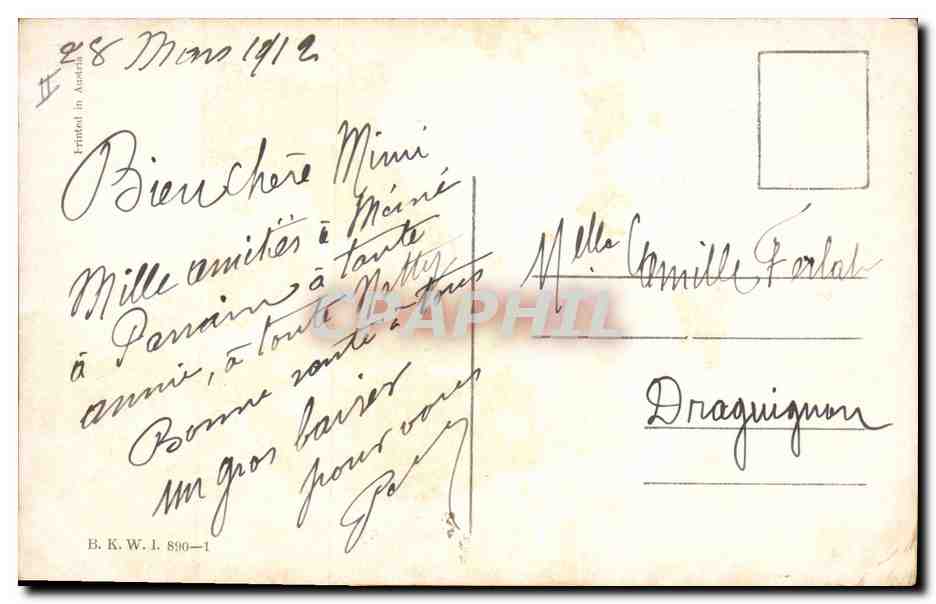 28 Mars 1912
II
Printed in Austria
Bien chère Mimi
Mille amitiés à Méiné
à Parrain à tante
annie, à toute Netty
Bonne santé à tous
un gros baiser
pour vous
B. K. W. I. 890—1
Melle Camille Ferlat
Draguignan
CRAPHIL